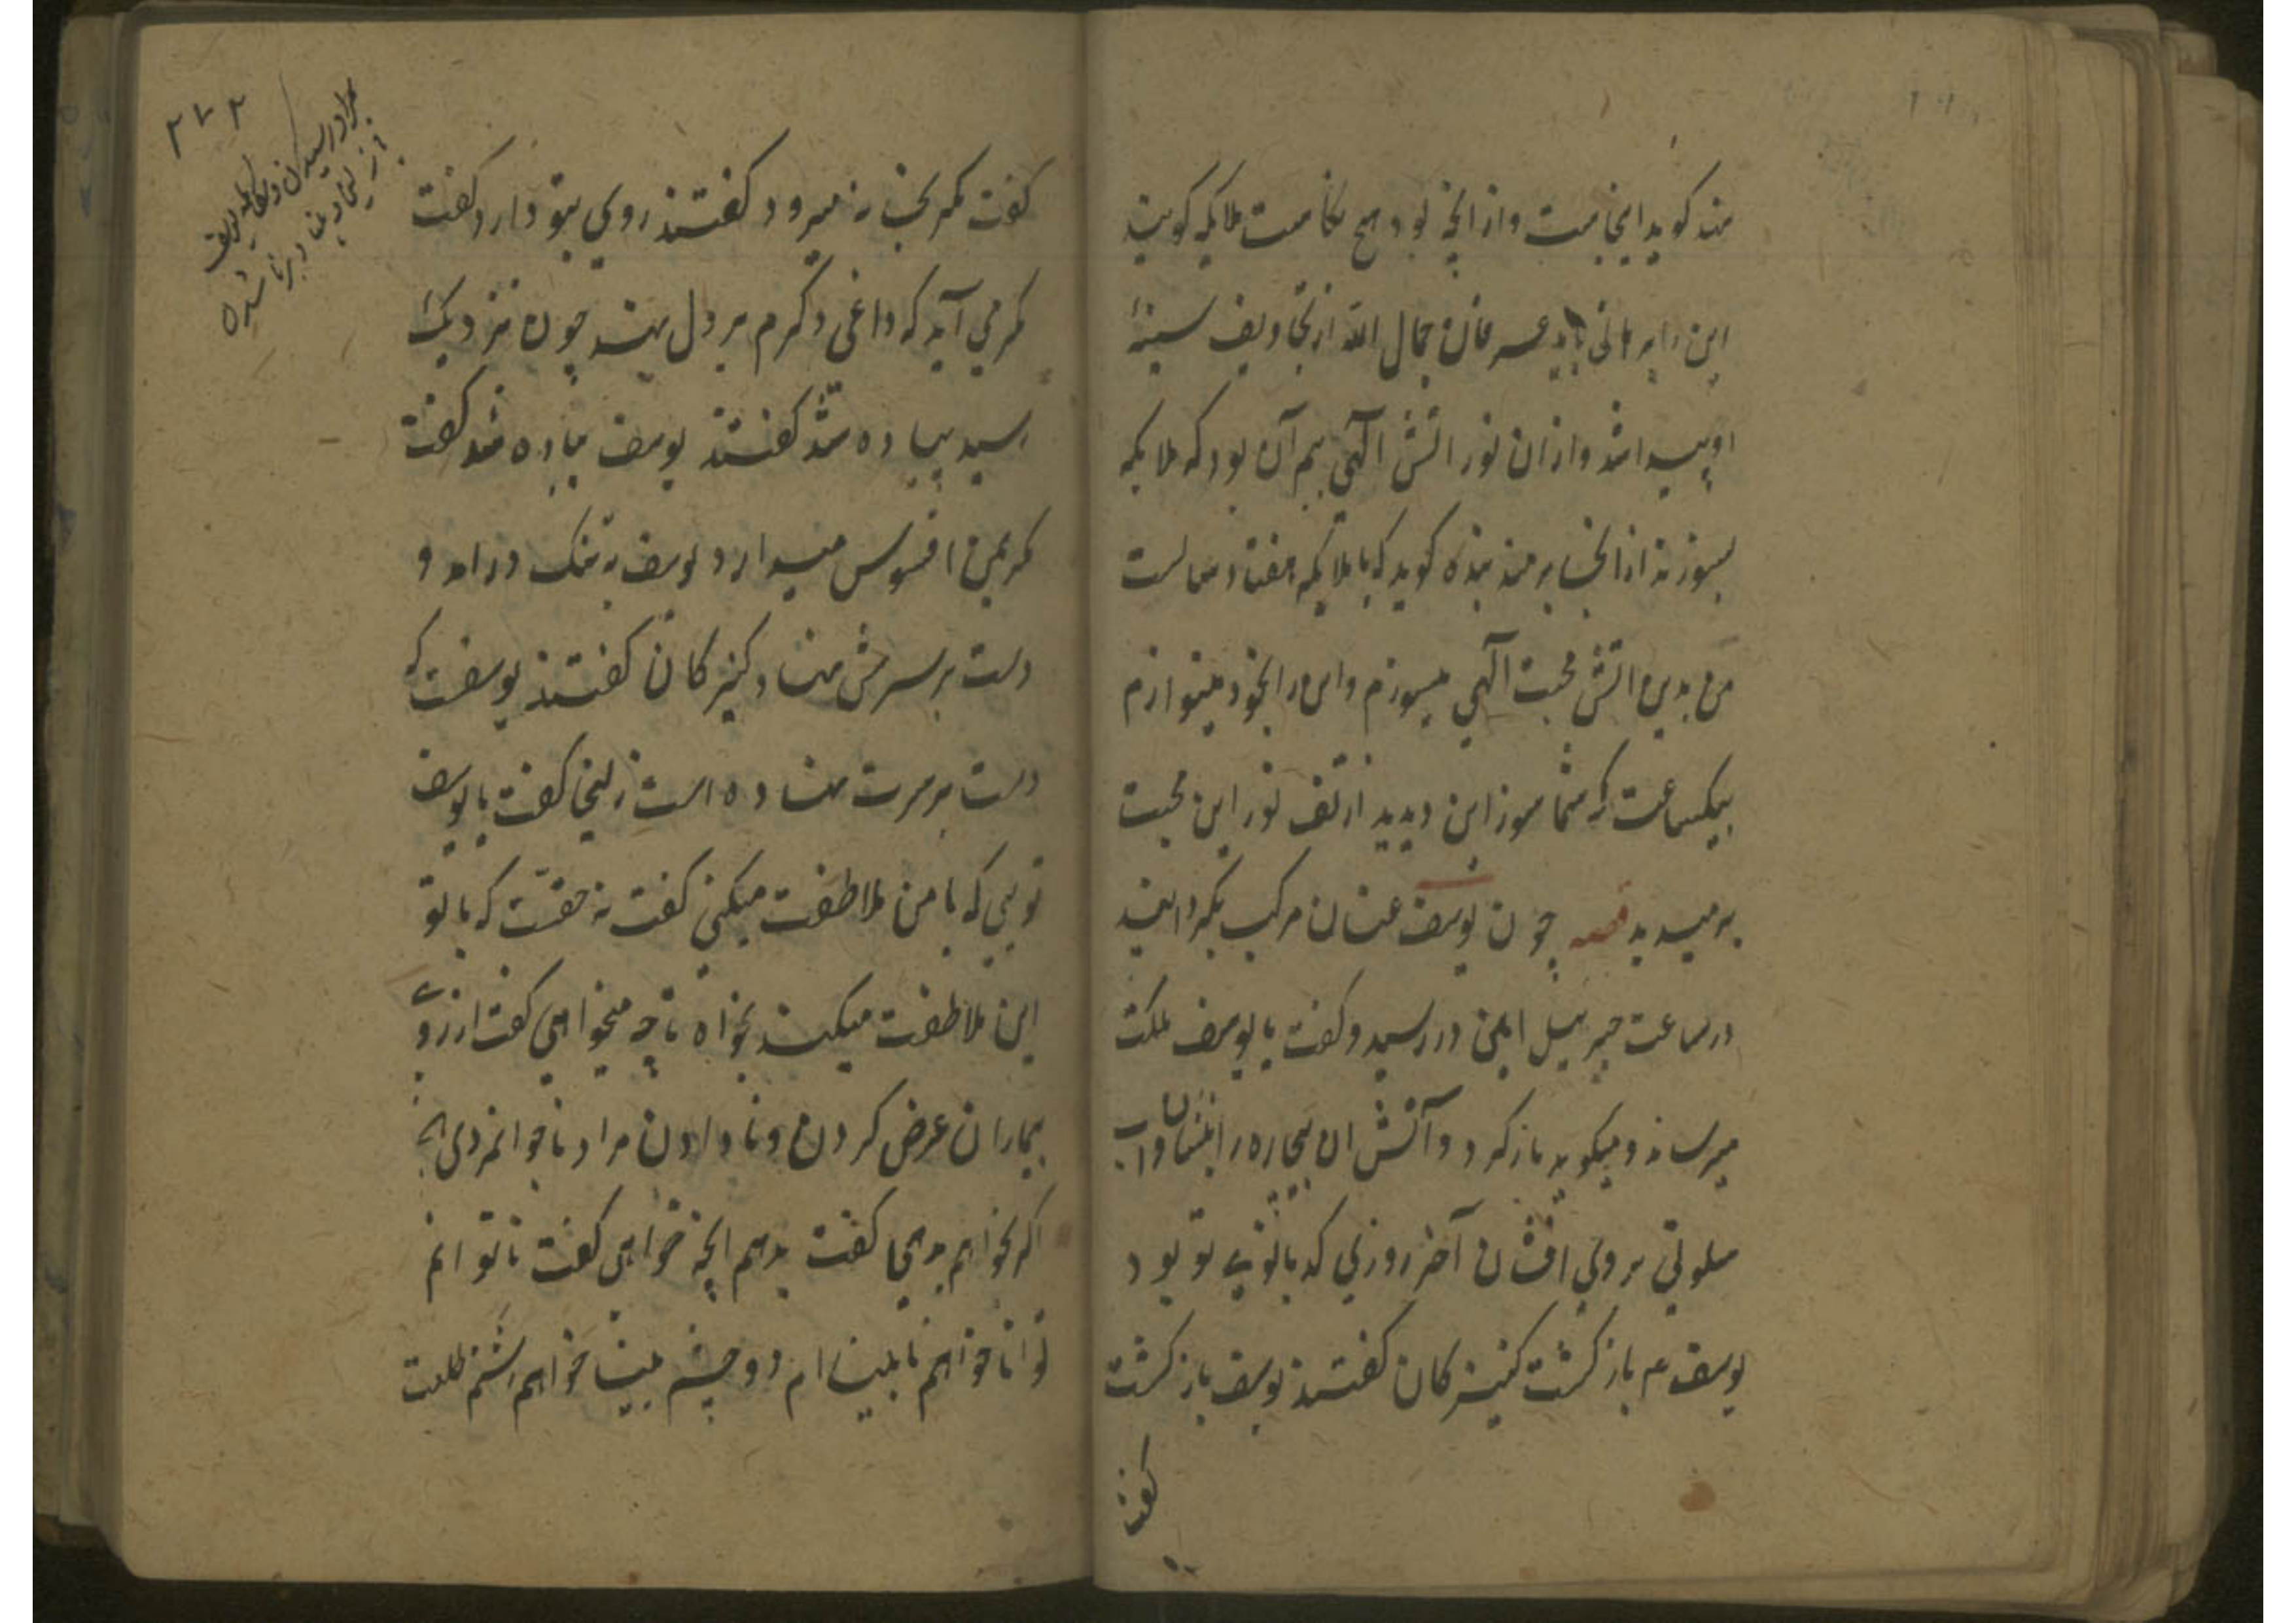 مند کوید اینجاست و از انچه بود هیچ نکاست ملایکه کویند
این را برهانی باید عرفان جمال الله از تجاویف سینهٔ
او پیدا شد و از ان نور اتش الهی بیم آن بود که ملایکه
بسوزند از انجا بر منه بنده کوید که با ملایکه هفتاد سالست
من بدین اتش محبت الهی میسوزم و این را بخود مینوازم
بیکساعت که شما سوز این دیدید از تف نور این محبت
برمیدید قصه چون یوسف عنان مرکب بکردانید
در ساعت جبرییل امین در رسید و کفت یا یوسف ملکت
میرساند و میکوید باز کرد و آتش ان بیچاره را بنشان و اب
سلوتی بر وی افشان آخر روزی که بانوی تو بود
یوسف عم باز کشت کنیزکان کفتند یوسف باز کشت
کفت
۲۷۲
بمراد رسیدن زلیخا و بینا و برنا شدن
کفت مکر بخانه میرود کفتند روی بتو دارد کفت
مکر می آید که داغی دکرم بر دل نهد چون نزدیک
رسید پیاده شد کفتند یوسف پیاده شد کفت
مکر بمن افسوس میدارد یوسف به تنک در امد و
دست بر سرش نهاد کنیزکان کفتند یوسفت که
دست بر سرت نهاده است زلیخا کفت یا یوسف
تویی که با من ملاطفت میکنی کفت نه حقست که با تو
این ملاطفت میکند بخواه تا چه میخواهی کفت ارزوی
بیماران عرض کردن و نادادن مراد ناجوانمردی
اکر بخواهم بدهی کفت بدهم انچه خواهی کفت ناتوانم
توانا خواهم نابینا ام دو چشم بینا خواهم زشتم طلعت